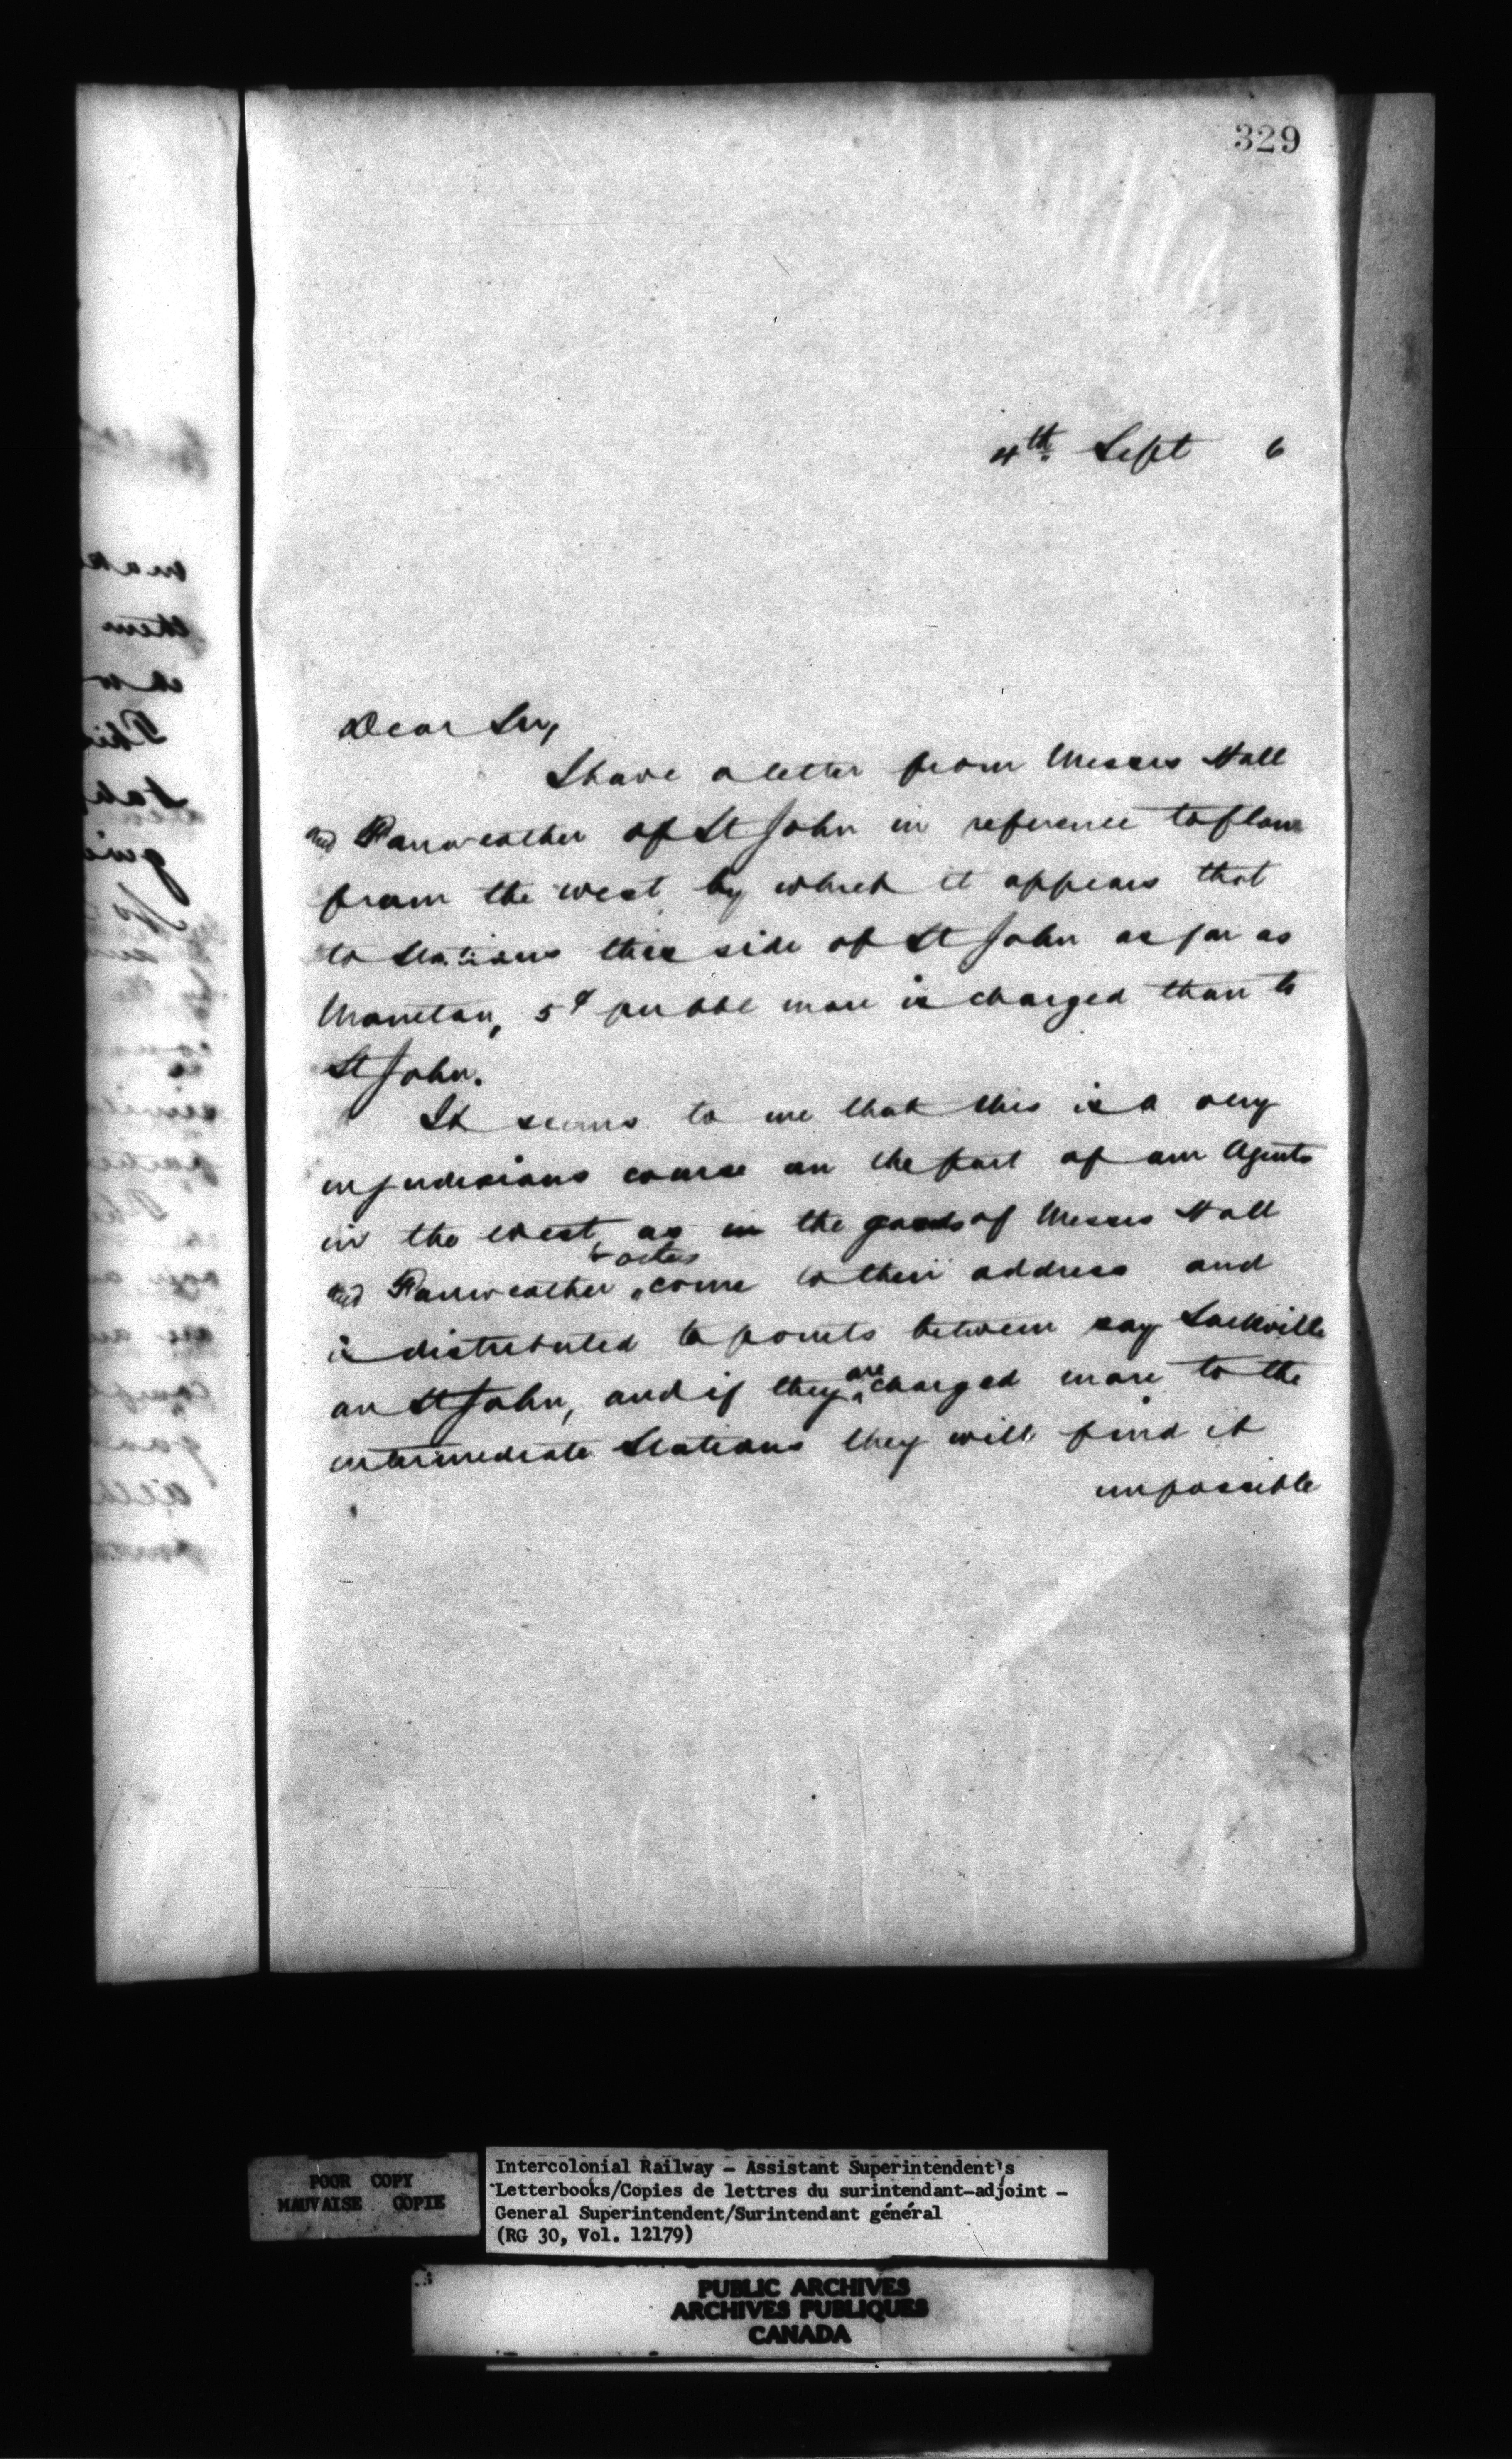 329
4th. Sept 6
Dear Sir,
I have a letter from Messrs Hall
and Fairweather of St John in reference to flour
from the west by which it appears that
to Stations this side of St John as far as
Moncton, 5¢ per bbl more is charged than to
St John.
It seems to me that this is a very
injudicious course on the part of our Agents
in the West, as in the goods of Messrs Hall
and Fairweather & others come to their address and
is distributed to points between say Sackville
an St John, and if they are charged more to the
intermediate Stations they will find it
impossible
POOR COPY
MAUVAISE COPIE
Intercolonial Railway - Assistant Superintendent's
Letterbooks/Copies de lettres du surintendant-adjoint -
General Superintendent/Surintendant général
(RG 30, Vol. 12179)
PUBLIC ARCHIVES
ARCHIVES PUBLIQUES
CANADA